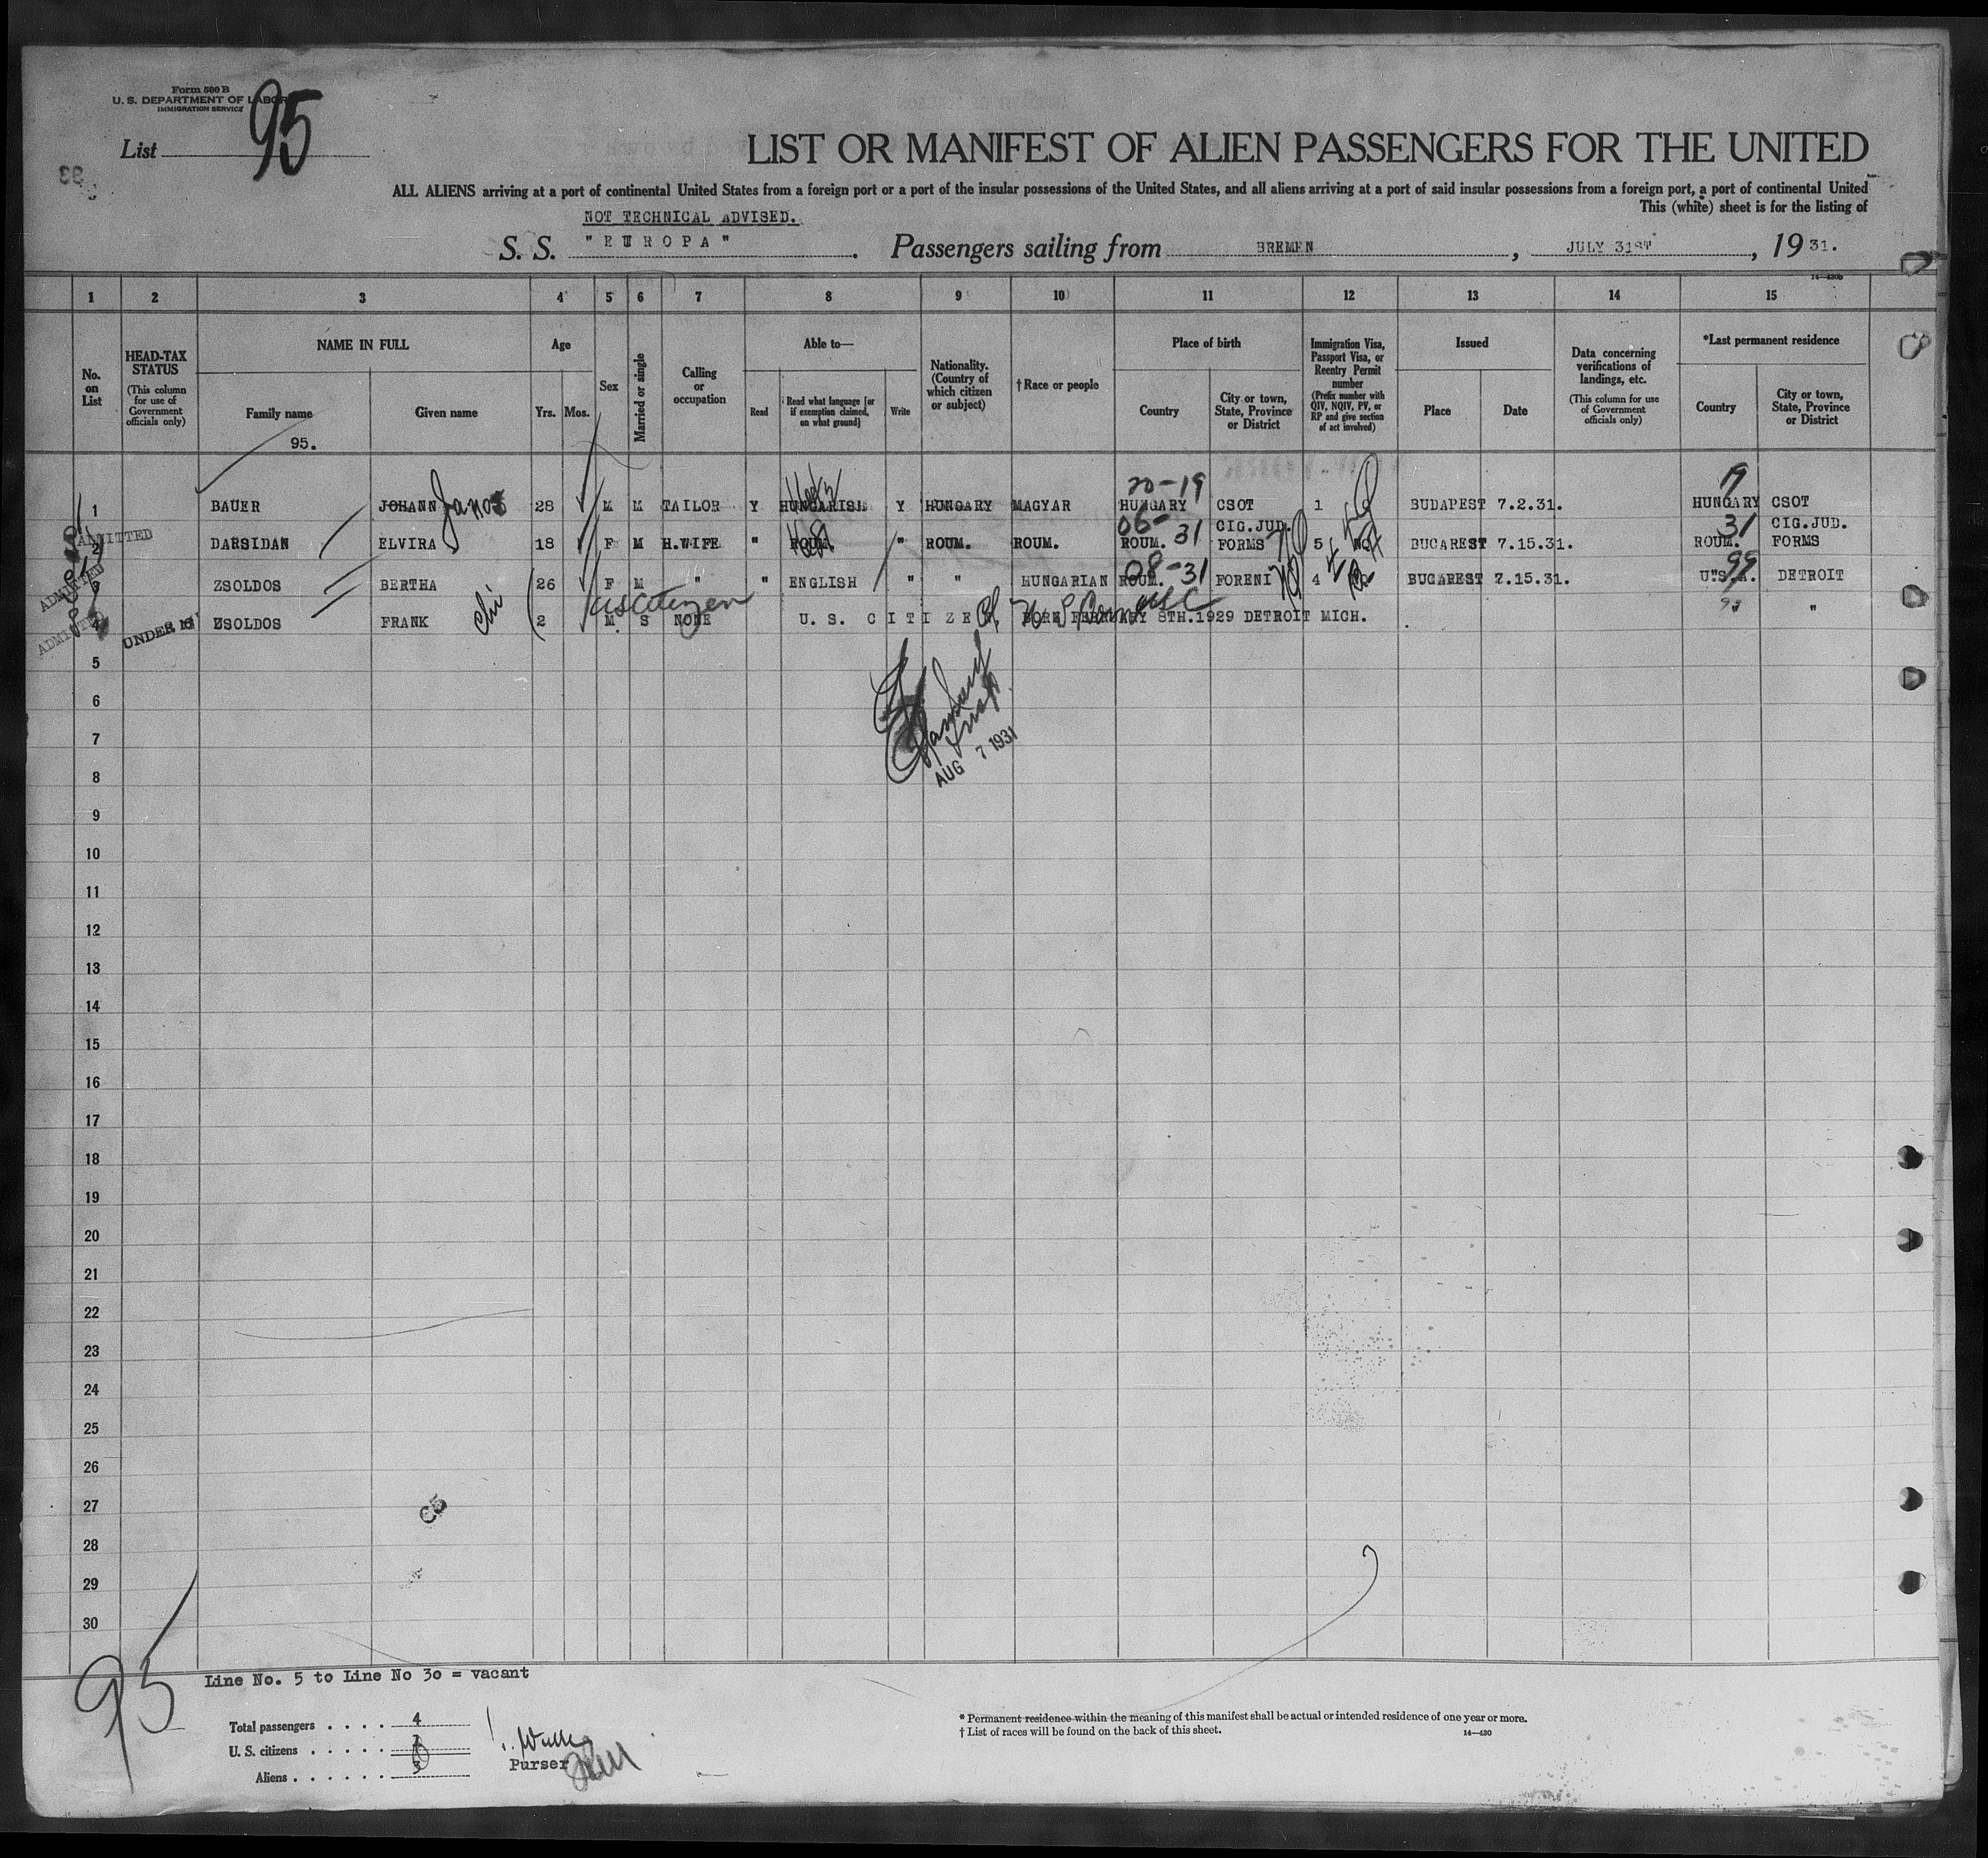 Form 500 B
U. S. DEPARTMENT OF LABOR
IMMIGRATION SERVICE
List 95
LIST OR MANIFEST OF ALIEN PASSENGERS FOR THE UNITED
ALL ALIENS arriving at a port of continental United States from a foreign port or a port of the insular possessions of the United States, and all aliens arriving at a port of said insular possessions from a foreign port, a port of continental United
This (white) sheet is for the listing of
NOT TECHNICAL ADVISED.
S. S. "EUROPA". Passengers sailing from BREMEN, JULY 31ST, 1931.
14—430b
1 2 3 4 5 6 7 8 9 10 11 12 13 14 15
No. on List
HEAD-TAX STATUS (This column for use of Government officials only)
NAME IN FULL
Family name
95.
Given name
Age
Yrs. Mos.
Sex
Married or single
Calling or occupation
Able to—
Read
Read what language [or if exemption claimed, on what ground]
Write
Nationality. (Country of which citizen or subject)
† Race or people
Place of birth
Country
City or town, State, Province or District
Immigration Visa, Passport Visa, or Reentry Permit number (Prefix number with QIV, NQIV, PV, or RP and give section of act involved)
Issued
Place
Date
Data concerning verifications of landings, etc. (This column for use of Government officials only)
*Last permanent residence
Country
City or town, State, Province or District
20-19
1 BAUER JOHANN Janos 28 M M TAILOR Y HUNGARISH Y HUNGARY MAGYAR HUNGARY CSOT 1 BUDAPEST 7.2.31. HUNGARY CSOT
06- 31 31
ADMITTED 2 DARSIDAN ELVIRA 18 F M H.WIFE " ROUM. " ROUM. ROUM. ROUM. CIG.JUD. FORMS 5 BUCAREST 7.15.31. ROUM. CIG.JUD. FORMS
08-31 99
ADMITTED 3 ZSOLDOS BERTHA 26 F M " " ENGLISH " " HUNGARIAN ROUM. FORENI 4 BUCAREST 7.15.31. U.S.A. DETROIT
US Citizen
ADMITTED 4 UNDER 16 ZSOLDOS FRANK 2 M S NONE U. S. CITIZEN, BORN FEBRUARY 8TH.1929 DETROIT MICH. "
5
6
7
AUG 7 1931
8
9
10
11
12
13
14
15
16
17
18
19
20
21
22
23
24
25
26
27
28
29
30
95
Line No. 5 to Line No 30 = vacant
Total passengers . . . . 4
U. S. citizens . . . . . 1
Aliens . . . . . . 3
Purser
* Permanent residence within the meaning of this manifest shall be actual or intended residence of one year or more.
† List of races will be found on the back of this sheet.
14—430